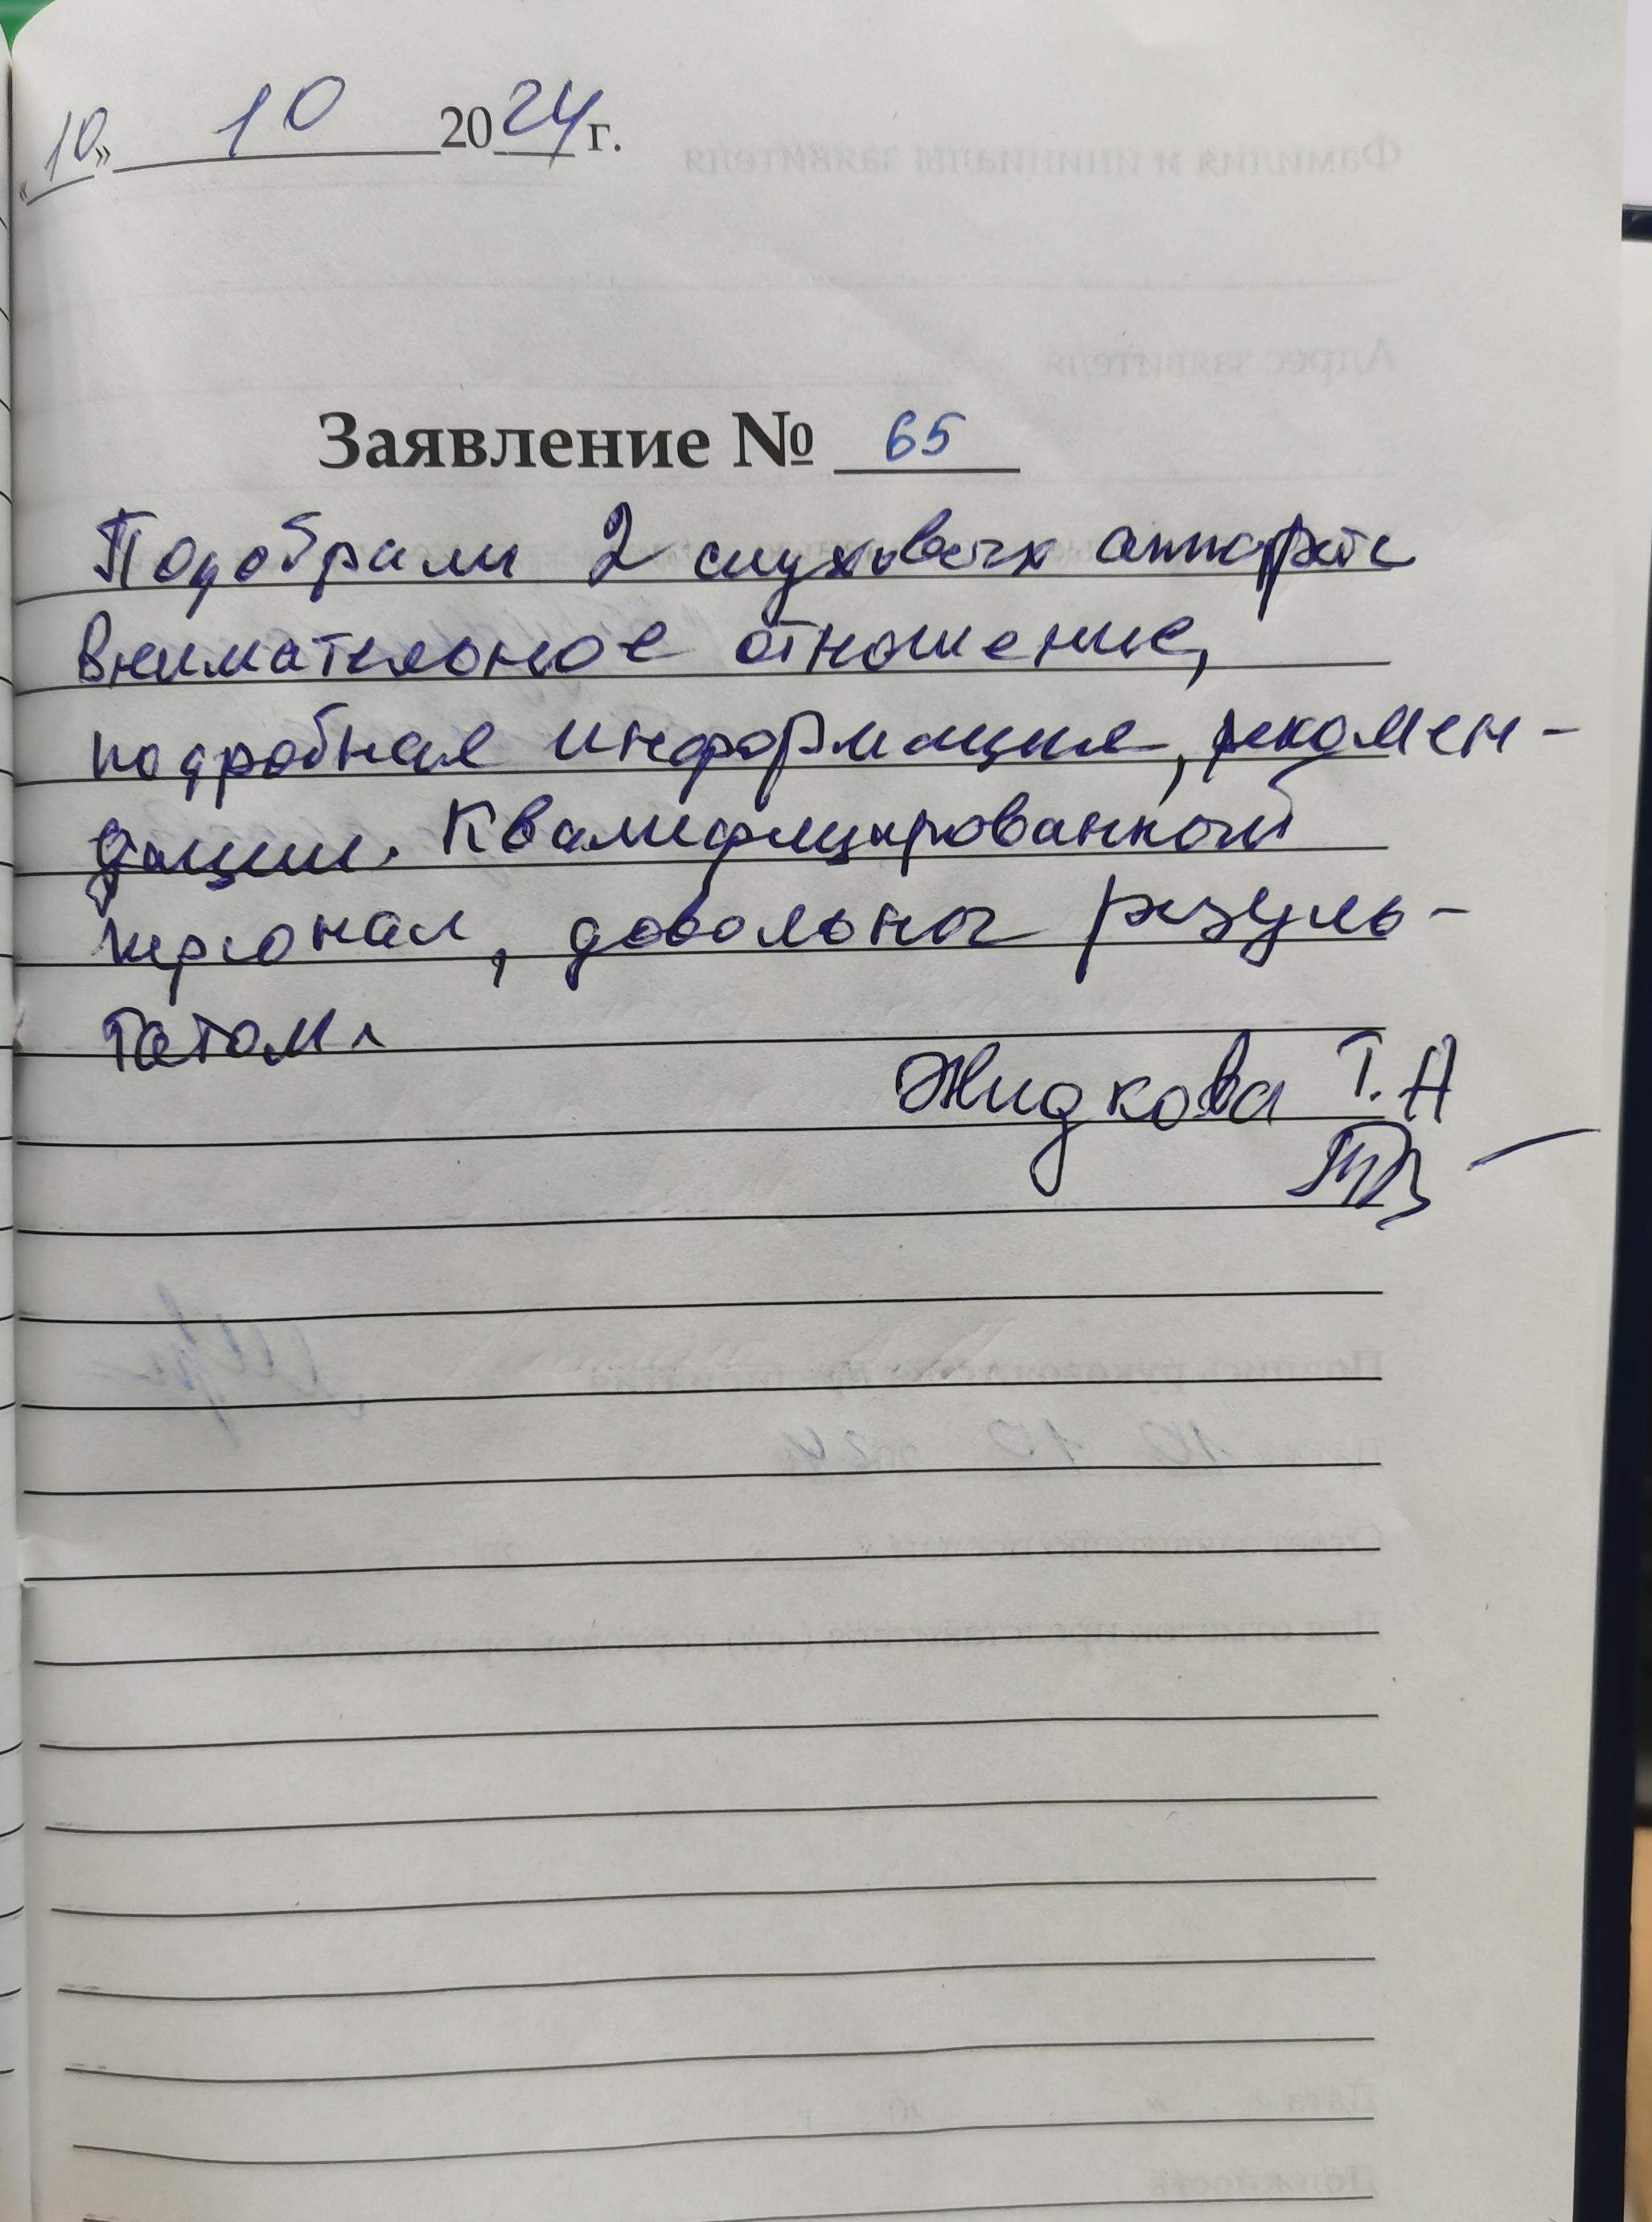 «10» 10 2024 г.
Заявление № 65
Подобрали 2 слуховых аппарата
Внимательное отношение,
подробная информация, рекомен-
дации. Квалифицированный
персонал, довольны резуль-
татом.
Жидкова Т.А